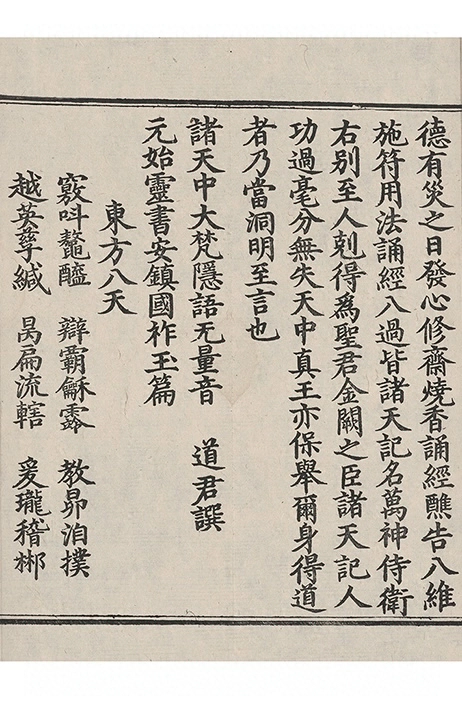 德有災之日發心修齋燒香誦經醮告八維
施符用法誦經八過皆諸天記名萬神侍衛
右別至人剋得為聖君金闕之臣諸天記人
功過毫分無失天中真王亦保舉爾身得道
者乃當洞明至言也
諸天中大梵隱語无量音 道君譔
元始靈書安鎮國祚玉篇
東方八天
竅呌鼇醯 辯霸龢霝 教昴洎撲
越英孳緘 昺扁流轄 爰瓏稽郴